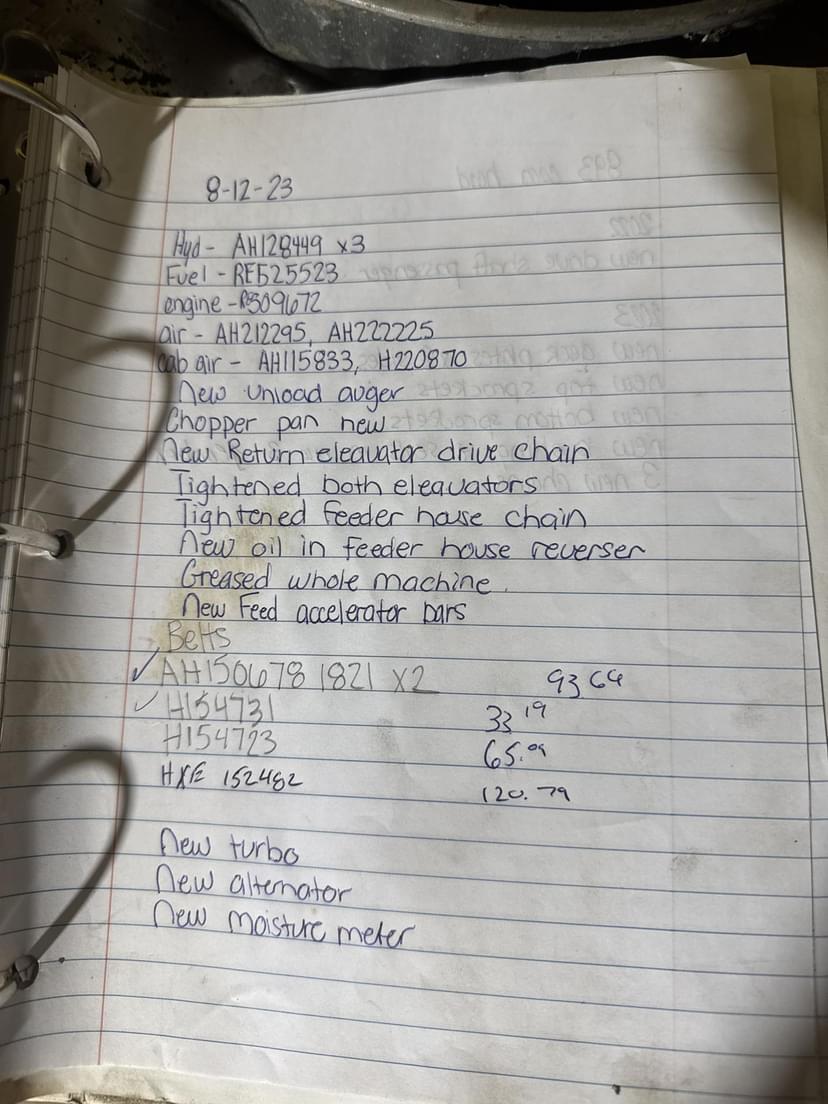 8-12-23
Hyd - AH128449 x3
Fuel - RE525523
engine - R509672
air - AH212295, AH222225
cab air - AH115833, H220870
New unload auger
Chopper pan new
New Return eleavator drive chain
Tightened both eleavators
Tightened feeder house chain
New oil in feeder house reverser
Greased whole machine.
New Feed accelerator bars
Belts
✓ AH150678 1821 x2 93 64
✓ H154731 33 19
H154723 65.09
HXE 152482 120.79
New turbo
New alternator
New moisture meter